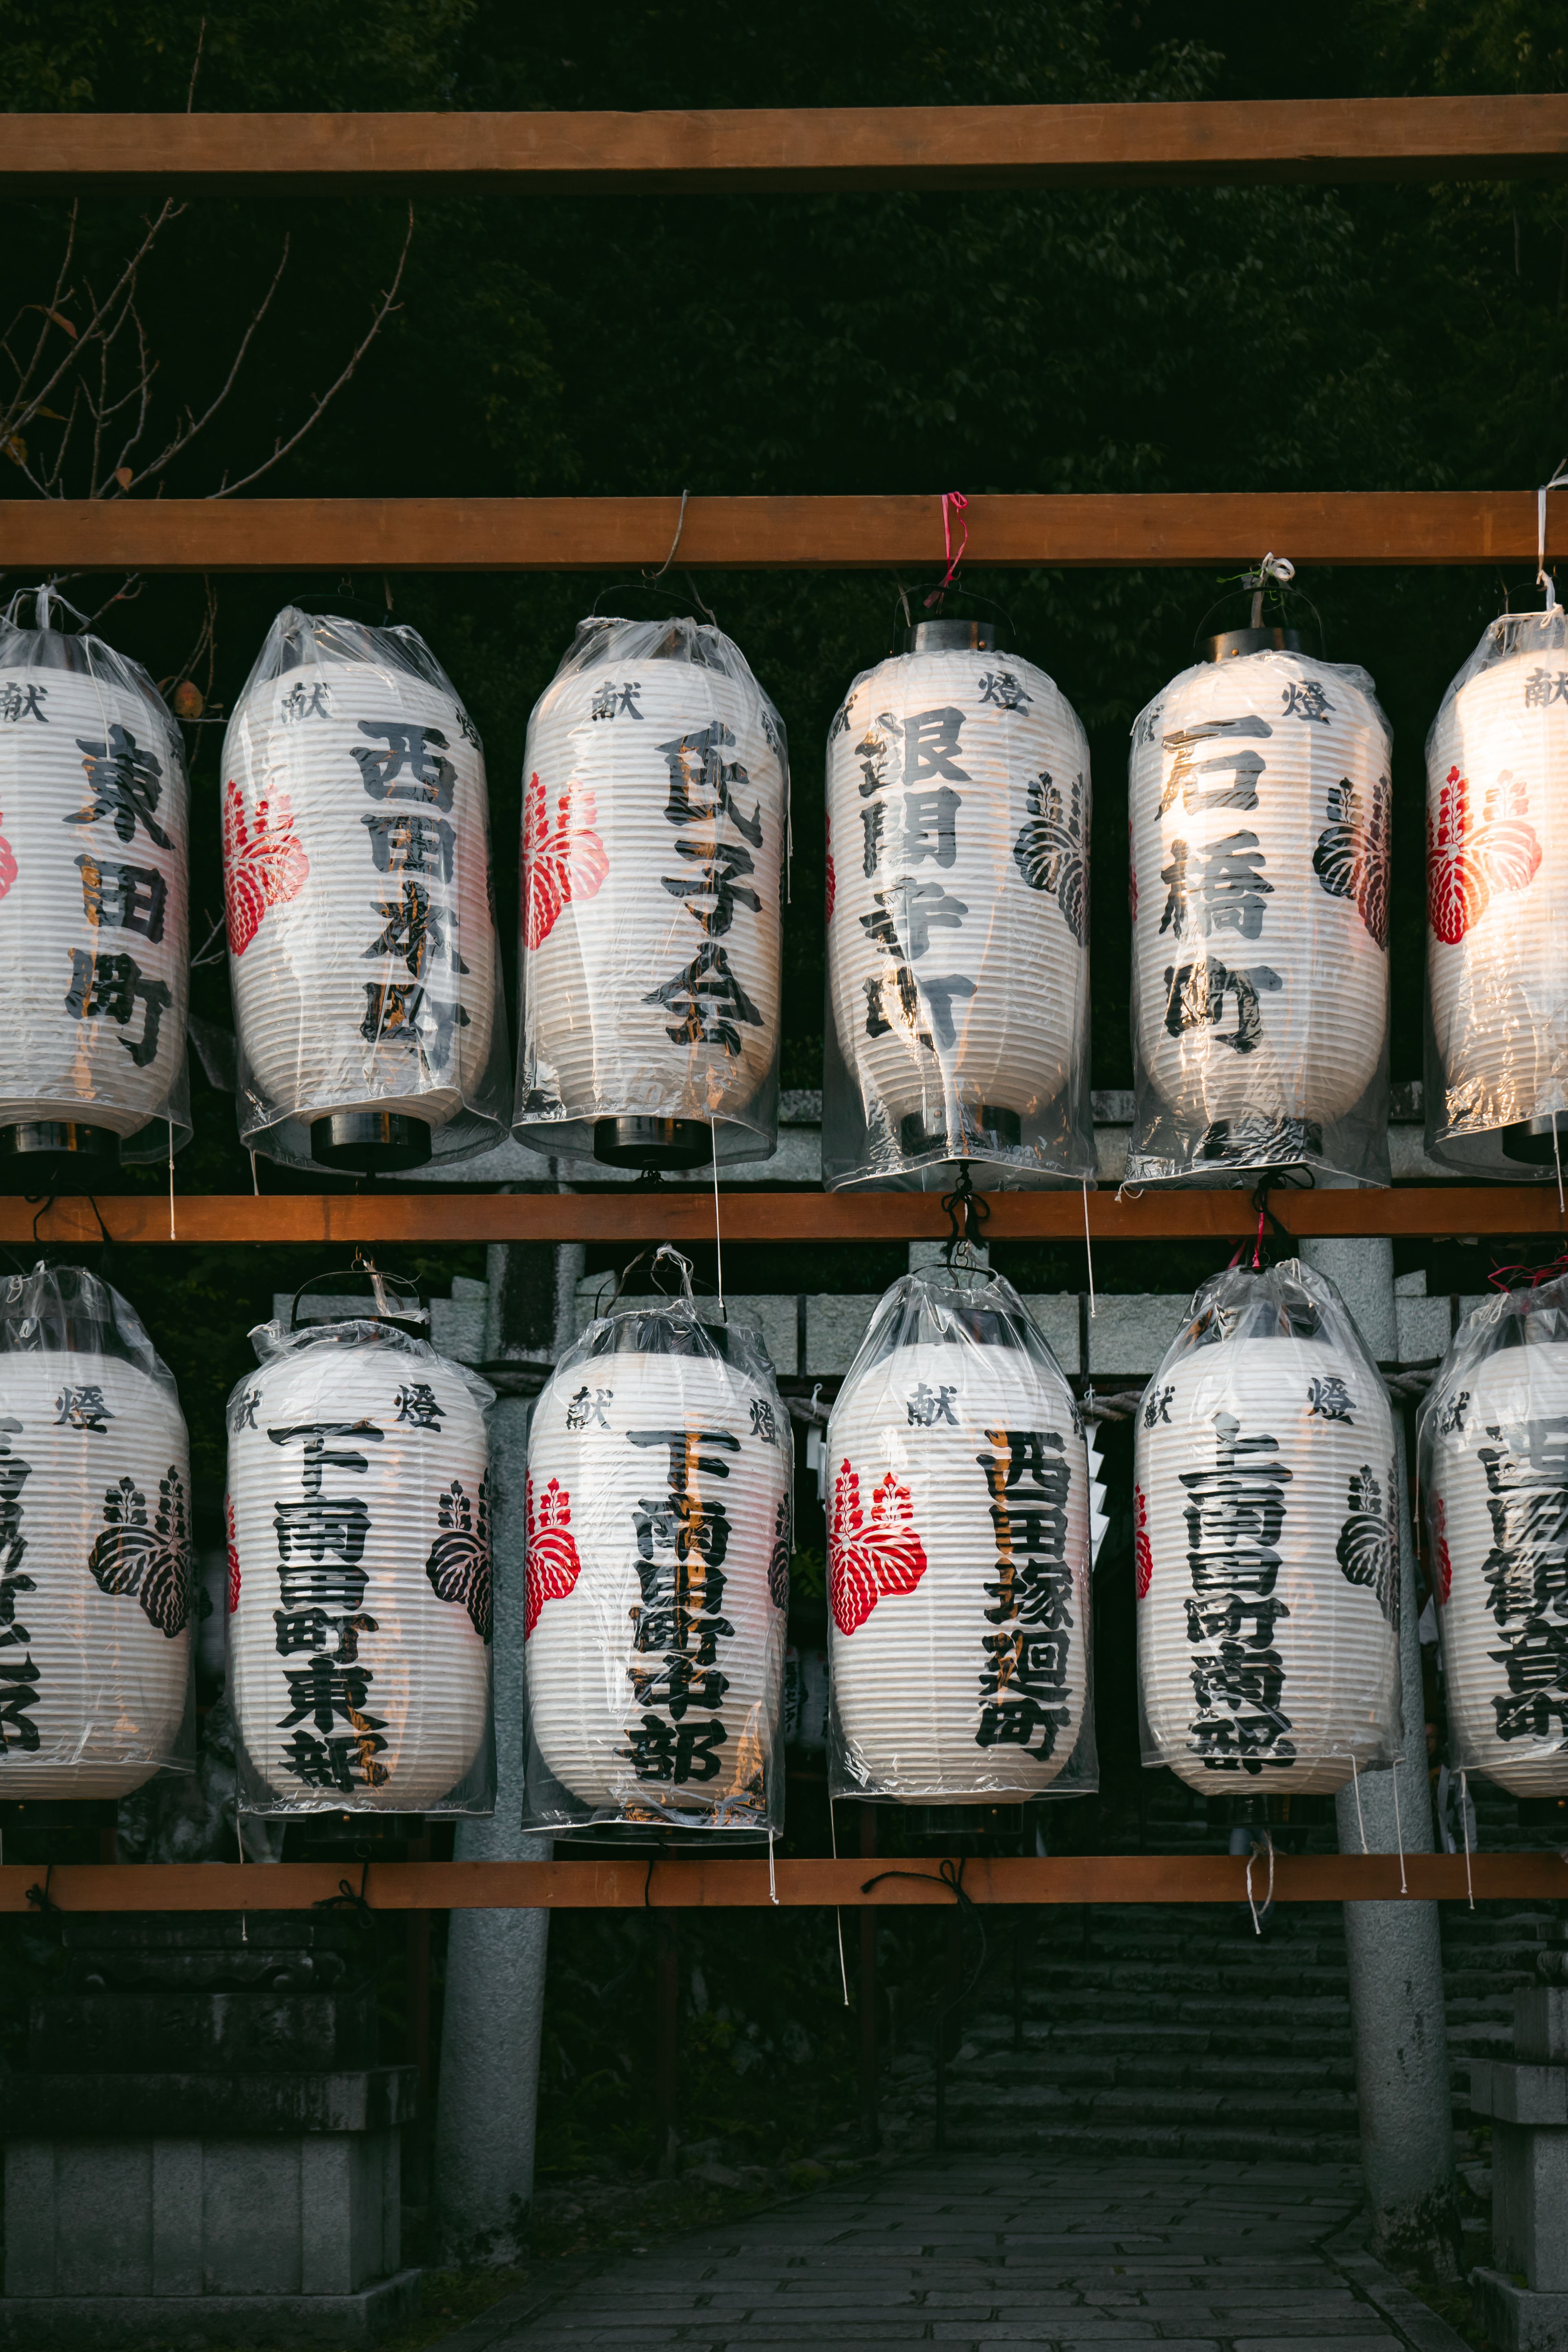 献
東田町
献
西田本町
献
氏子会
燈
銀閣寺町
燈
石橋町
献
燈
献
燈
下南田町東部
献
燈
下南田町中部
献
西田塚廻町
献
燈
上南田町南部
献